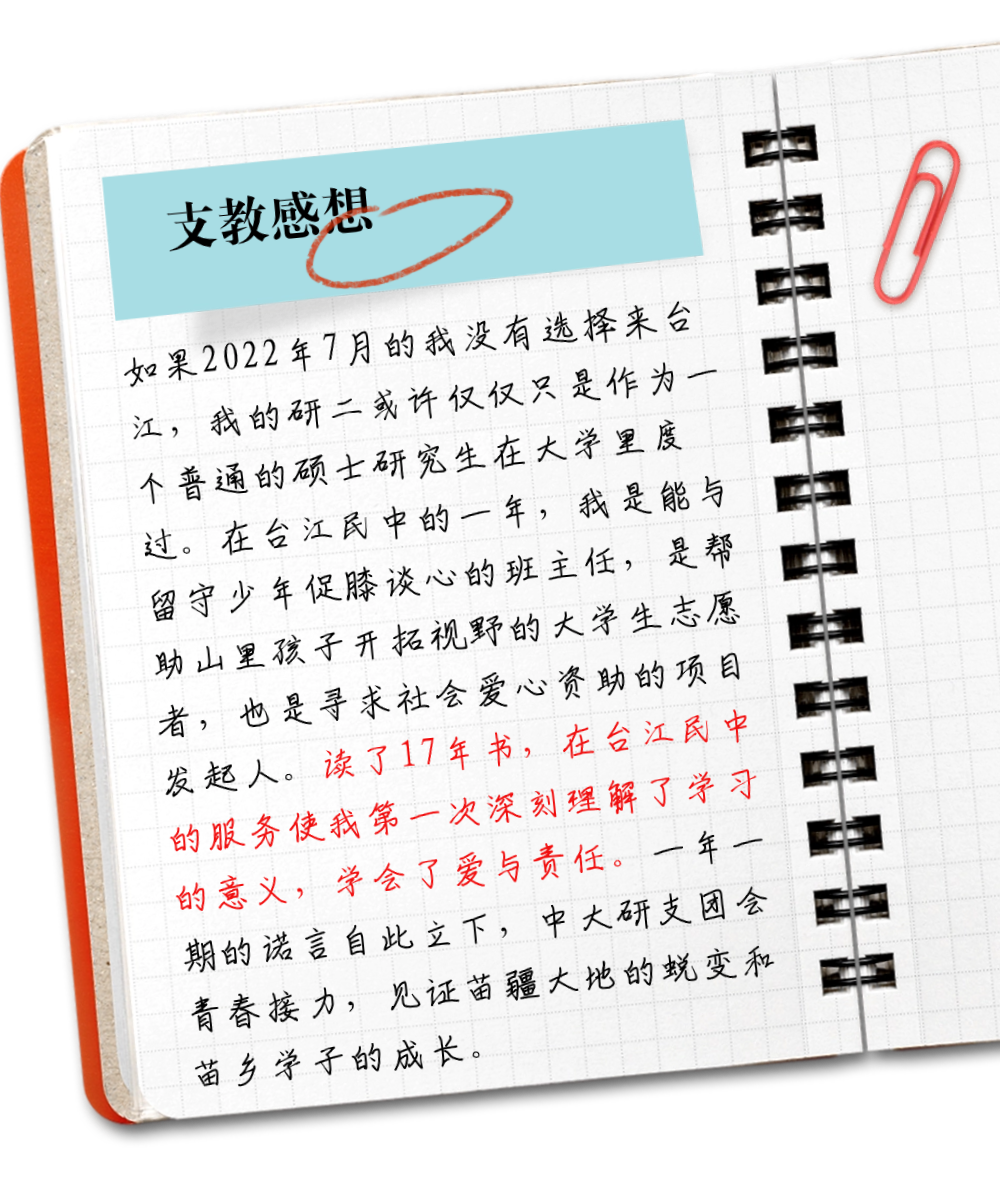 支教感想
如果2022年7月的我没有选择来台
江，我的研二或许仅仅只是作为一
个普通的硕士研究生在大学里度
过。在台江民中的一年，我是能与
留守少年促膝谈心的班主任，是帮
助山里孩子开拓视野的大学生志愿
者，也是寻求社会爱心资助的项目
发起人。读了17年书，在台江民中
的服务使我第一次深刻理解了学习
的意义，学会了爱与责任。一年一
期的诺言自此立下，中大研支团会
青春接力，见证苗疆大地的蜕变和
苗乡学子的成长。